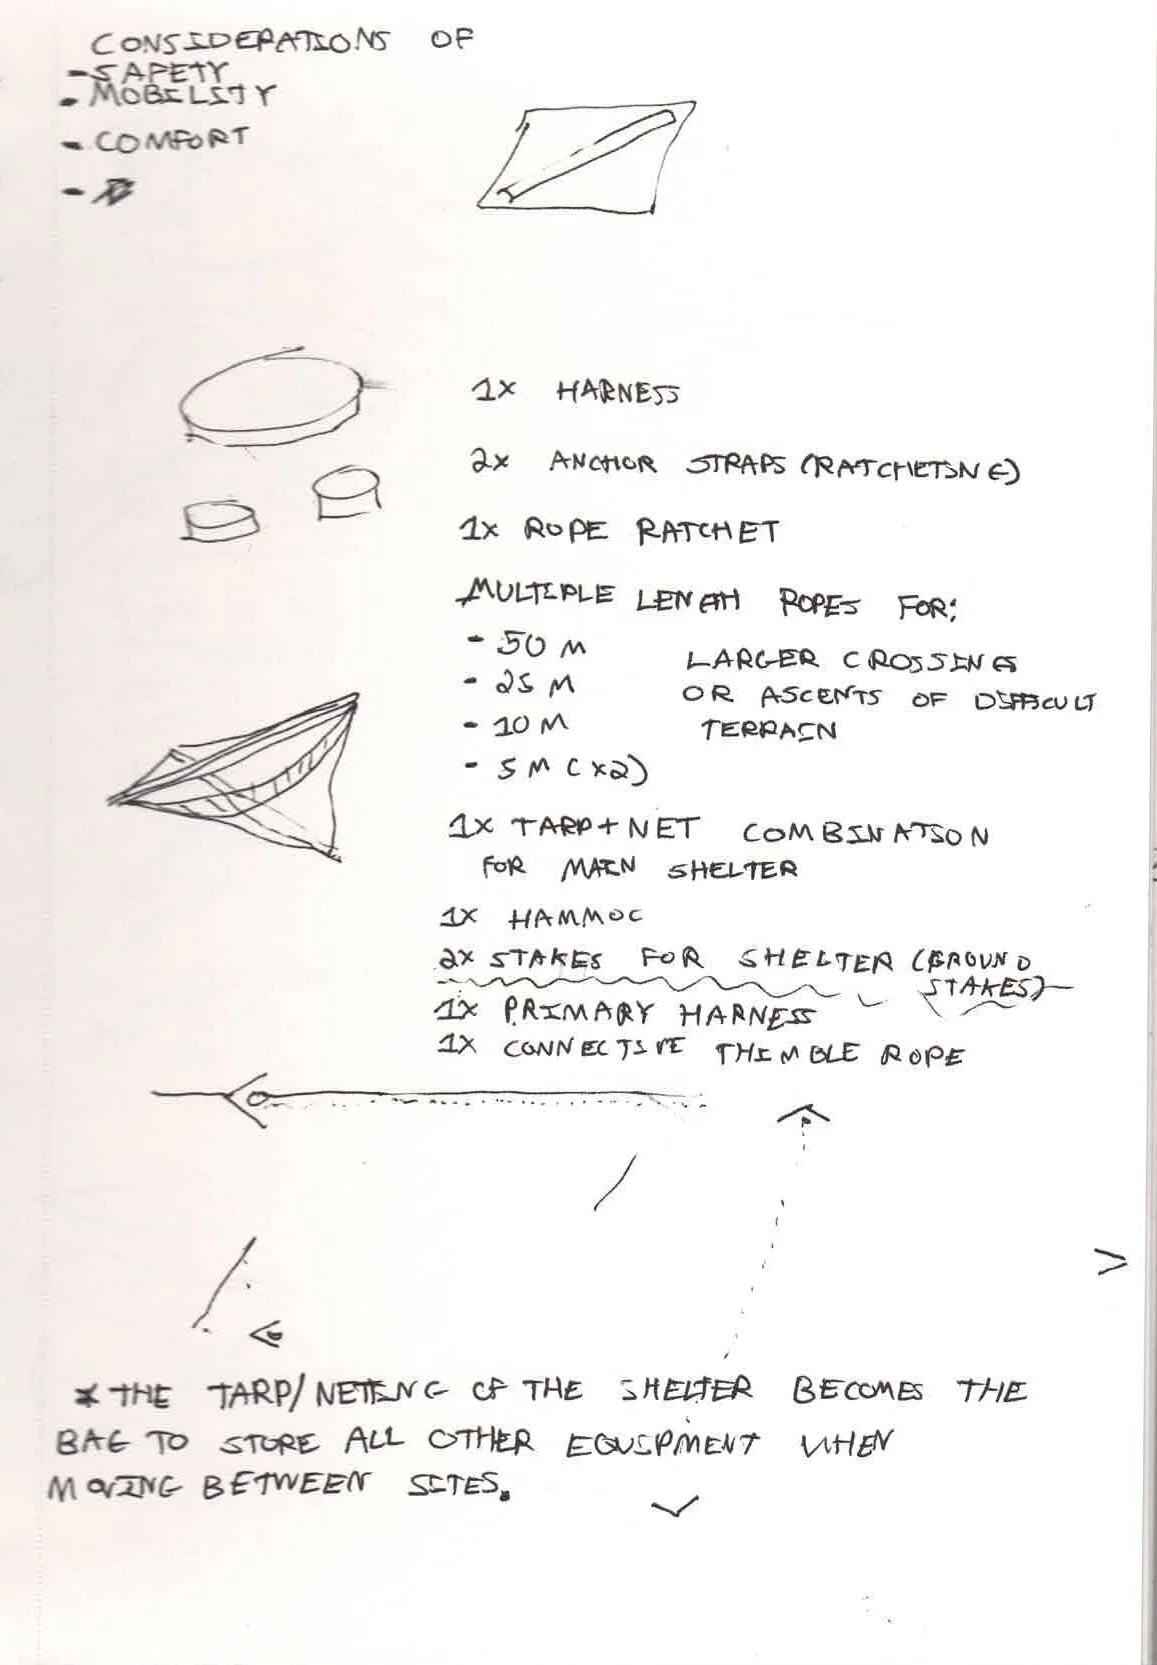 CONSIDERATIONS OF
- SAFETY
- MOBILITY
- COMFORT
-
1X HARNESS
2X ANCHOR STRAPS (RATCHETING)
1X ROPE RATCHET
MULTIPLE LENGTH ROPES FOR:
- 50 M
- 25 M
- 10 M
- 5 M (X2)
LARGER CROSSING
OR ASCENTS OF DIFFICULT
TERRAIN
1X TARP + NET COMBINATION
FOR MAIN SHELTER
1X HAMMOC
2X STAKES FOR SHELTER (GROUND
STAKES)
1X PRIMARY HARNESS
1X CONNECTIVE THIMBLE ROPE
* THE TARP/NETING OF THE SHELTER BECOMES THE
BAG TO STORE ALL OTHER EQUIPMENT WHEN
MOVING BETWEEN SITES.